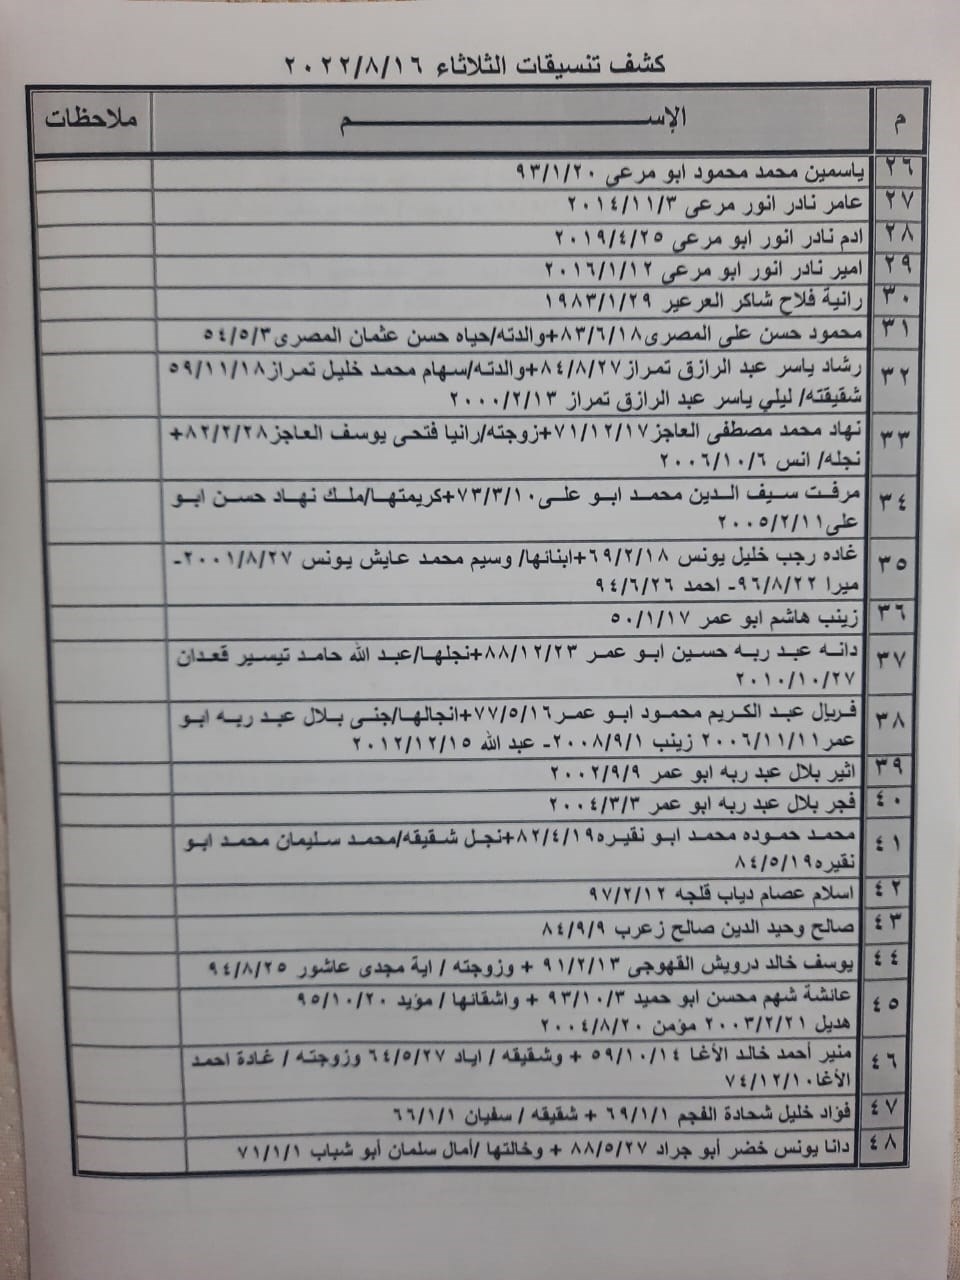 كشف تنسيقات الثلاثاء ٢٠٢٢/٨/١٦
م الإســـــم ملاحظات
٢٦ ياسمين محمد محمود ابو مرعي ٩٣/١/٢٠
٢٧ عامر نادر انور مرعي ٢٠١٤/١١/٣
٢٨ ادم نادر انور ابو مرعي ٢٠١٩/٤/٢٥
٢٩ امير نادر انور ابو مرعي ٢٠١٦/١/١٢
٣٠ رانية فلاح شاكر العرعير ١٩٨٣/١/٢٩
٣١ محمود حسن على المصرى٨٣/٦/١٨+والدته/حياه حسن عثمان المصرى٥٤/٥/٣
٣٢ رشاد ياسر عبد الرازق تمراز٨٤/٨/٢٧+والدته/سهام محمد خليل تمراز٥٩/١١/١٨
شقيقته/ ليلي ياسر عبد الرازق تمراز ٢٠٠٠/٢/١٣
٣٣ نهاد محمد مصطفى العاجز٧١/١٢/١٧+زوجته/رانيا فتحى يوسف العاجز٨٢/٢/٢٨+
نجله/ انس ٢٠٠٦/١٠/٦
٣٤ مرفت سيف الدين محمد ابو على٧٣/٣/١٠+كريمتها/ملك نهاد حسن ابو
على٢٠٠٥/٢/١١
٣٥ غاده رجب خليل يونس ٦٩/٢/١٨+ابنائها/ وسيم محمد عايش يونس ٢٠٠١/٨/٢٧-
ميرا ٩٦/٨/٢٢- احمد ٩٤/٦/٢٦
٣٦ زينب هاشم ابو عمر ٥٠/١/١٧
٣٧ دانه عبد ربه حسين ابو عمر ٨٨/١٢/٢٣+نجلها/عبد الله حامد تيسير قعدان
٢٠١٠/١٠/٢٧
٣٨ فريال عبد الكريم محمود ابو عمر٧٧/٥/١٦+انجالها/جنى بلال عبد ربه ابو
عمر٢٠٠٦/١١/١١ زينب ٢٠٠٨/٩/١- عبد الله ٢٠١٢/١٢/١٥
٣٩ اثير بلال عبد ربه ابو عمر ٢٠٠٢/٩/٩
٤٠ فجر بلال عبد ربه ابو عمر ٢٠٠٤/٣/٣
٤١ محمد حموده محمد ابو نقيره٨٢/٤/١٩+نجل شقيقه/محمد سليمان محمد ابو
نقيره٨٤/٥/١٩
٤٢ اسلام عصام دياب قلجه ٩٧/٢/١٢
٤٣ صالح وحيد الدين صالح زعرب ٨٤/٩/٩
٤٤ يوسف خالد درويش القهوجى ٩١/٢/١٣ + وزوجته / اية مجدى عاشور ٩٤/٨/٢٥
٤٥ عائشة شهم محسن ابو حميد ٩٣/١٠/٣ + واشقائها / مؤيد ٩٥/١٠/٢٠
هديل ٢٠٠٣/٢/٢١ مؤمن ٢٠٠٤/٨/٢٠
٤٦ منير أحمد خالد الأغا ٥٩/١٠/١٤ + وشقيقه / اياد ٦٤/٥/٢٧ وزوجته / غادة احمد
الأغا٧٤/١٢/١٠
٤٧ فؤاد خليل شحادة الفجم ٦٩/١/١ + شقيقه / سفيان ٦٦/١/١
٤٨ دانا يونس خضر أبو جراد ٨٨/٥/٢٧ + وخالتها /أمال سلمان أبو شباب ٧١/١/١